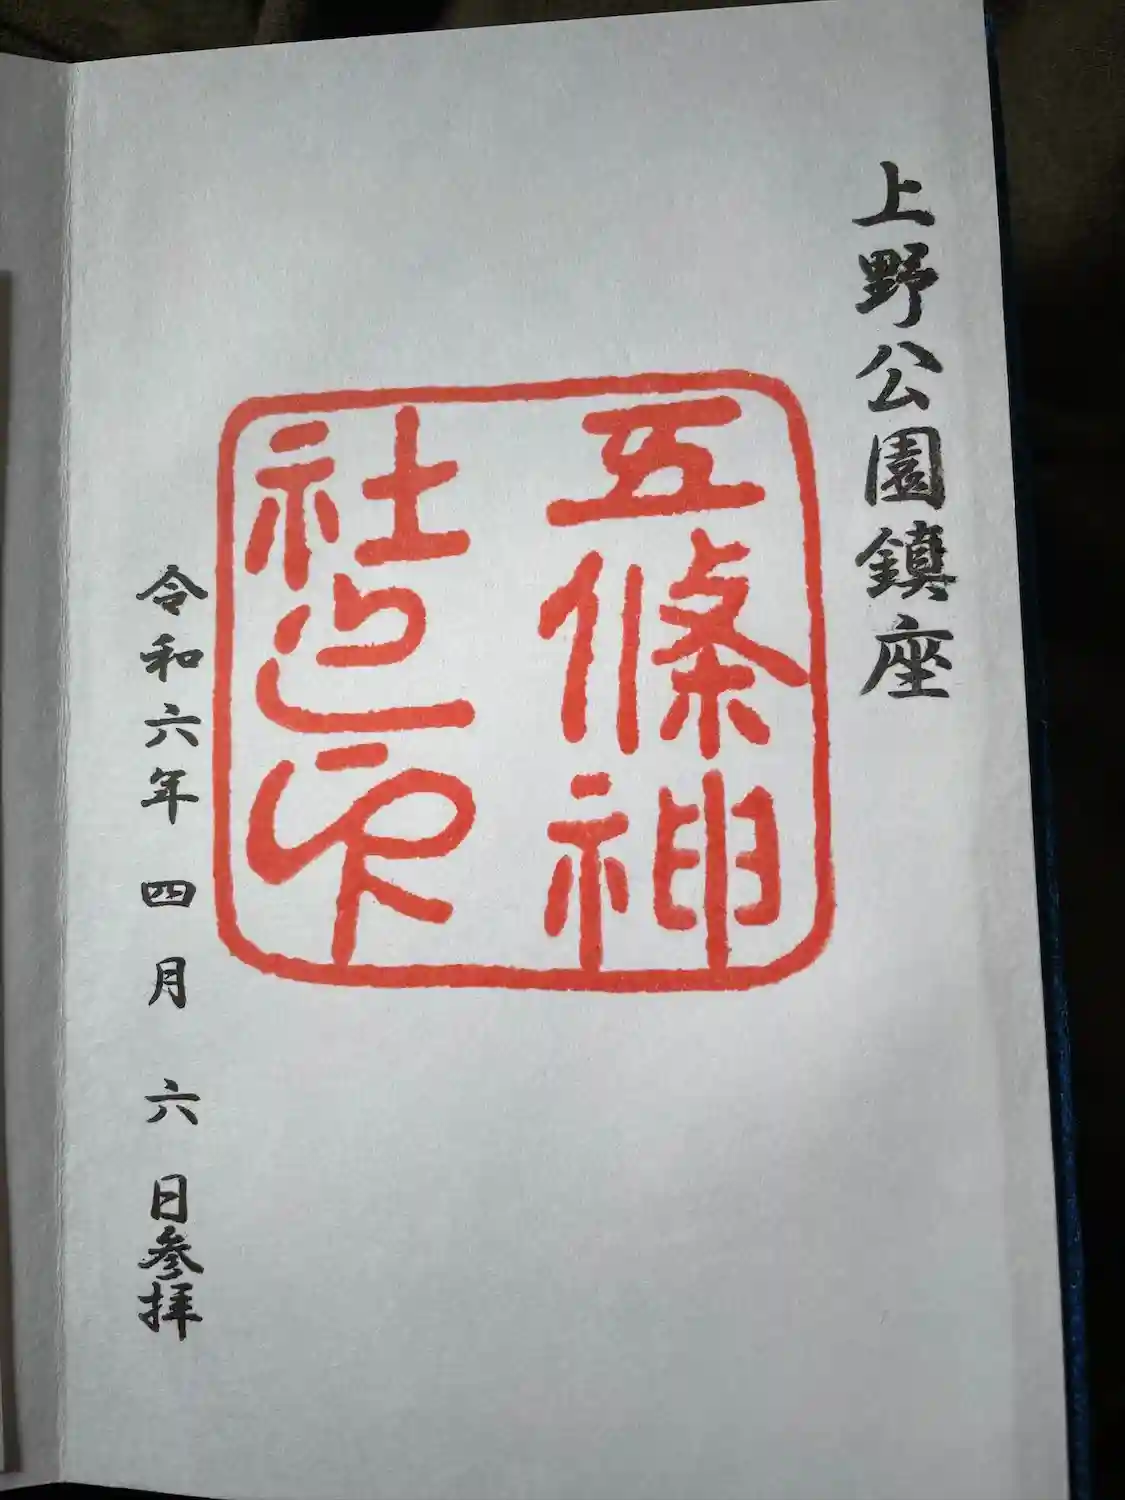 上野公園鎮座
五條神
社之印
令和六年四月六日参拝